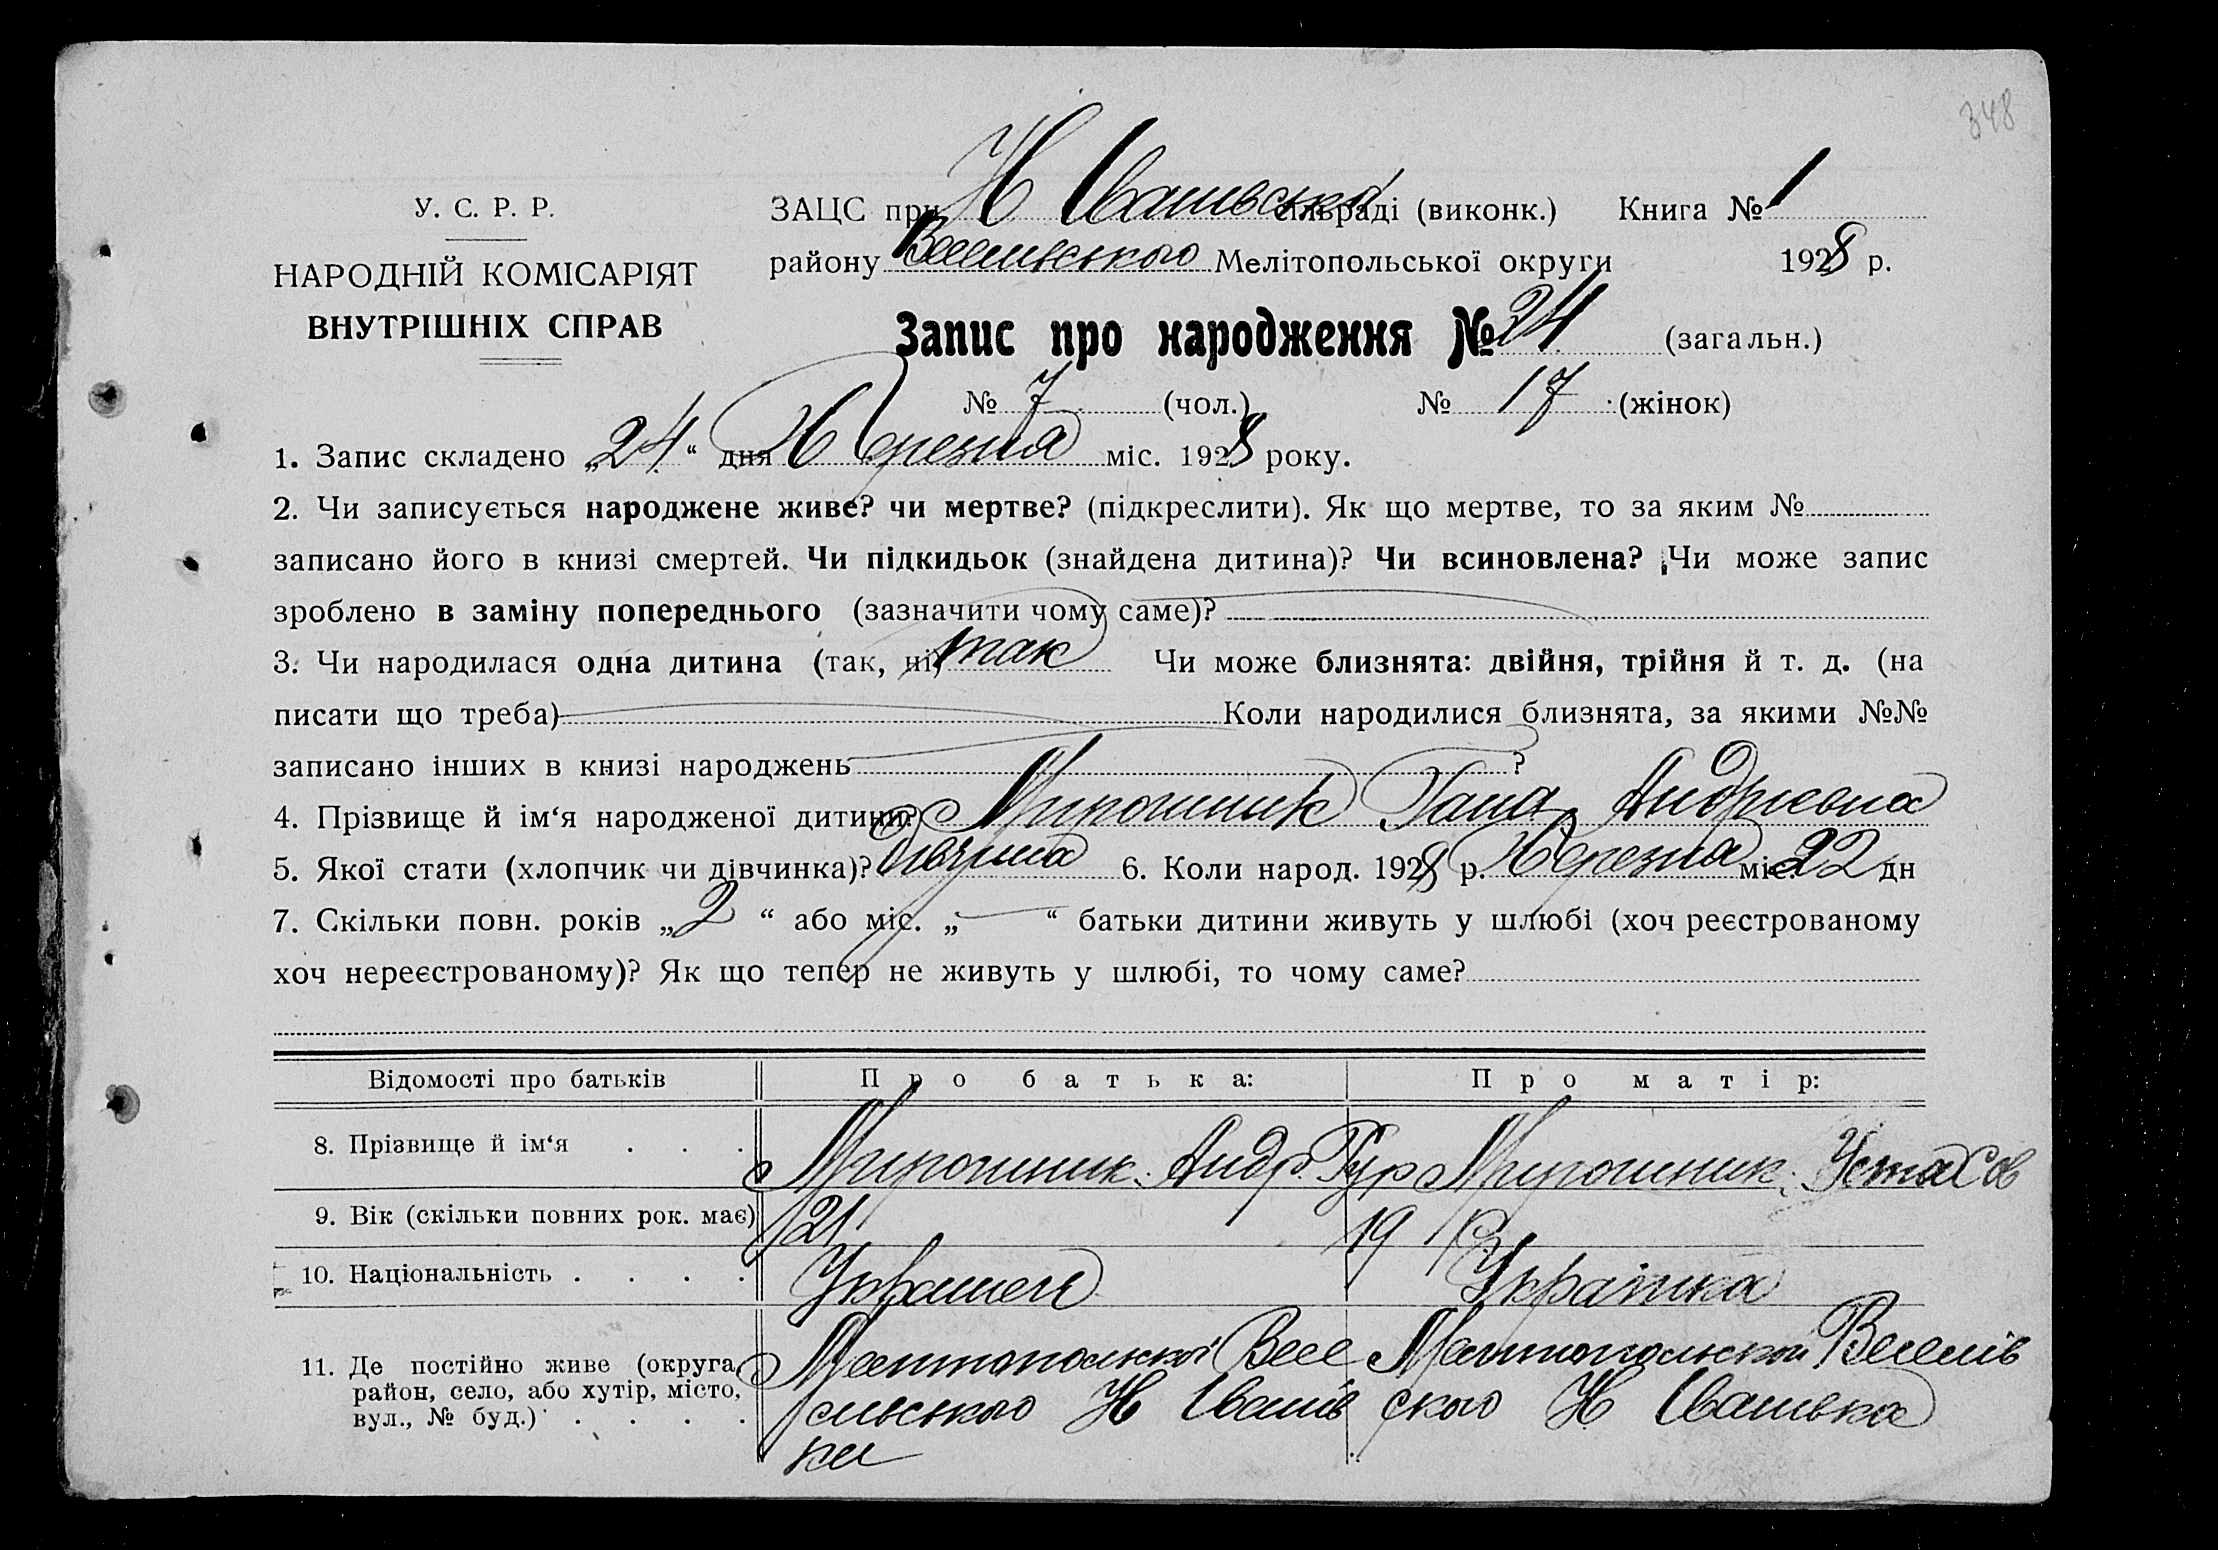 348
У. С. Р. Р.
НАРОДНІЙ КОМІСАРІЯТ
ВНУТРІШНІХ СПРАВ
ЗАЦС при Н Іванівській сільраді (виконк.) Книга № 1
району Веселівського Мелітопольської округи 1928 р.
Запис про народження № 24 (загальн.)
№ 7 (чол.) № 17 (жінок)
1. Запис складено „24“ дня Березня міс. 1928 року.
2. Чи записується народжене живе? чи мертве? (підкреслити). Як що мертве, то за яким №
записано його в книзі смертей. Чи підкидьок (знайдена дитина)? Чи всиновлена? Чи може запис
зроблено в заміну попереднього (зазначити чому саме)?
3. Чи народилася одна дитина (так, ні) так Чи може близнята: двійня, трійня й т. д. (на
писати що треба) Коли народилися близнята, за якими №№
записано інших в книзі народжень ?
4. Прізвище й ім‘я народженої дитини? Мирошник Ганна Андріевна
5. Якої стати (хлопчик чи дівчинка)? Дівчина 6. Коли народ. 1928 р. Березня міс. 22 дн
7. Скільки повн. років „2“ або міс. „—“ батьки дитини живуть у шлюбі (хоч реєстрованому
хоч нереєстрованому)? Як що тепер не живуть у шлюбі, то чому саме?
Відомості про батьків Про батька: Про матір:
8. Прізвище й ім‘я . . . Мирошник Андр. Гур Мирошник
9. Вік (скільки повних рок. має) 21 19
10. Національність . . . . Украінец Украінка
11. Де постійно живе (округа, район, село, або хутір, місто, вул., № буд.) . . . .
Мелитопольскої Весе
льського Н Іванів
ки
Мелитопольскои Веселів
ского Н Іванівка